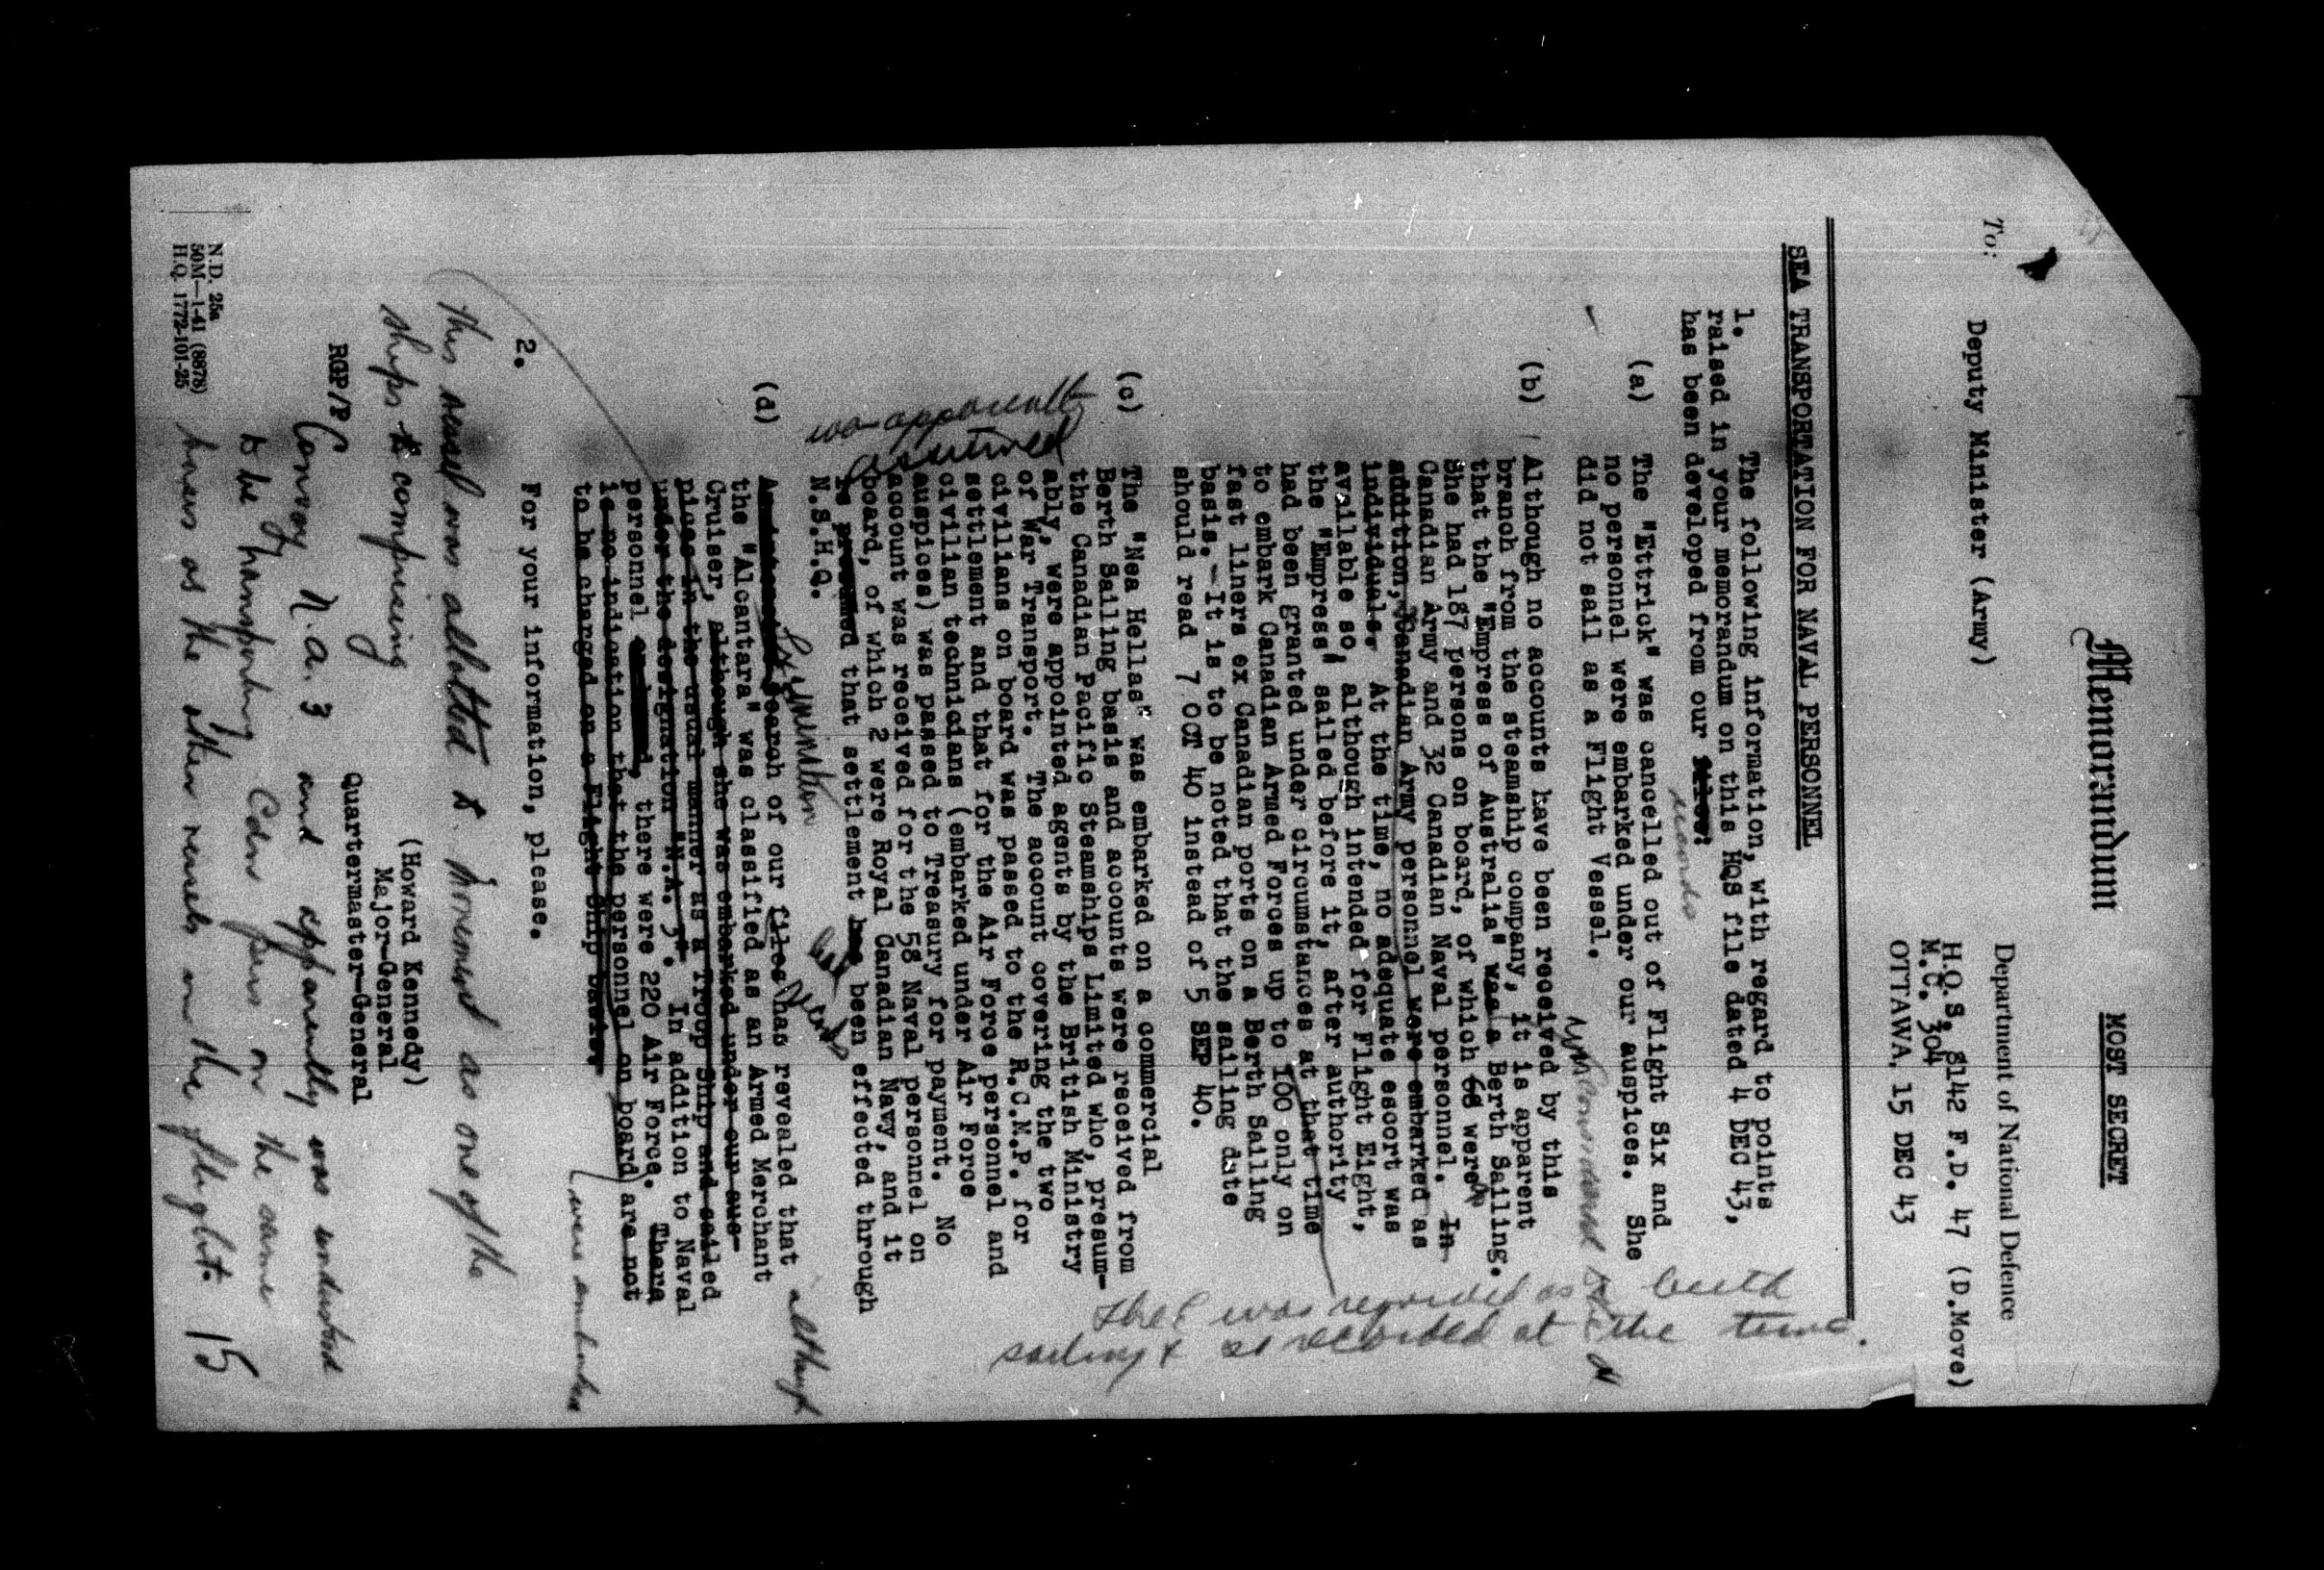 Memorandum
MOST SECRET
Department of National Defence
To:
Deputy Minister (Army)
H.Q.S. 8142 F.D. 47 (D.Move)
M.C. 304
OTTAWA, 15 DEC 43
SEA TRANSPORTATION FOR NAVAL PERSONNEL
1. The following information, with regard to points
raised in your memorandum on this HQS file dated 4 DEC 43,
has been developed from our files:
records
(a) The "Ettrick" was cancelled out of Flight Six and
no personnel were embarked under our auspices. She
did not sail as a Flight Vessel.
(b) Although no accounts have been received by this
branch from the steamship company, it is apparent
that the "Empress of Australia" was a Berth Sailing.
She had 187 persons on board, of which 68 were
Canadian Army and 32 Canadian Naval personnel. In
addition, Canadian Army personnel were embarked as
individuals. At the time, no adequate escort was
available so, although intended for Flight Eight,
the "Empress" sailed before it, after authority
had been granted under circumstances at that time
to embark Canadian Armed Forces up to 100 only on
fast liners ex Canadian ports on a Berth Sailing
basis. It is to be noted that the sailing date
should read 7 OCT 40 instead of 5 SEP 40.
she was regarded as a berth
sailing & so recorded at the time.
(c) The "Nea Hellas" was embarked on a commercial
Berth Sailing basis and accounts were received from
the Canadian Pacific Steamships Limited who, presum-
ably, were appointed agents by the British Ministry
of War Transport. The account covering the two
civilians on board was passed to the R.C.M.P. for
settlement and that for the Air Force personnel and
civilian technicians (embarked under Air Force
auspices) was passed to Treasury for payment. No
account was received for the 58 Naval personnel on
board, of which 2 were Royal Canadian Navy, and it
is presumed that settlement has been effected through
N.S.H.Q.
was apparently
assumed
had
(d) An intensive search of our files has revealed that
examination
although
the "Alcantara" was classified as an Armed Merchant
Cruiser, although she was embarked under our aus-
pices in the usual manner as a Troop Ship and sailed
under the designation "N.A. 3". In addition to Naval
personnel embarked, there were 220 Air Force. There
is no indication that the personnel on board are not
to be charged on a Flight Ship basis.
were embarked
2. For your information, please.
this vessel was allotted to Movement as one of the
ships to comprising
Convoy N.A. 3 and apparently was understood
to be transporting Cdn forces on the same
basis as the other vessels in the flight.
(Howard Kennedy)
Major-General
Quartermaster-General
RGP/PC
N.D. 25a
50M—1-41 (8878)
H.Q. 1772-101-25
15